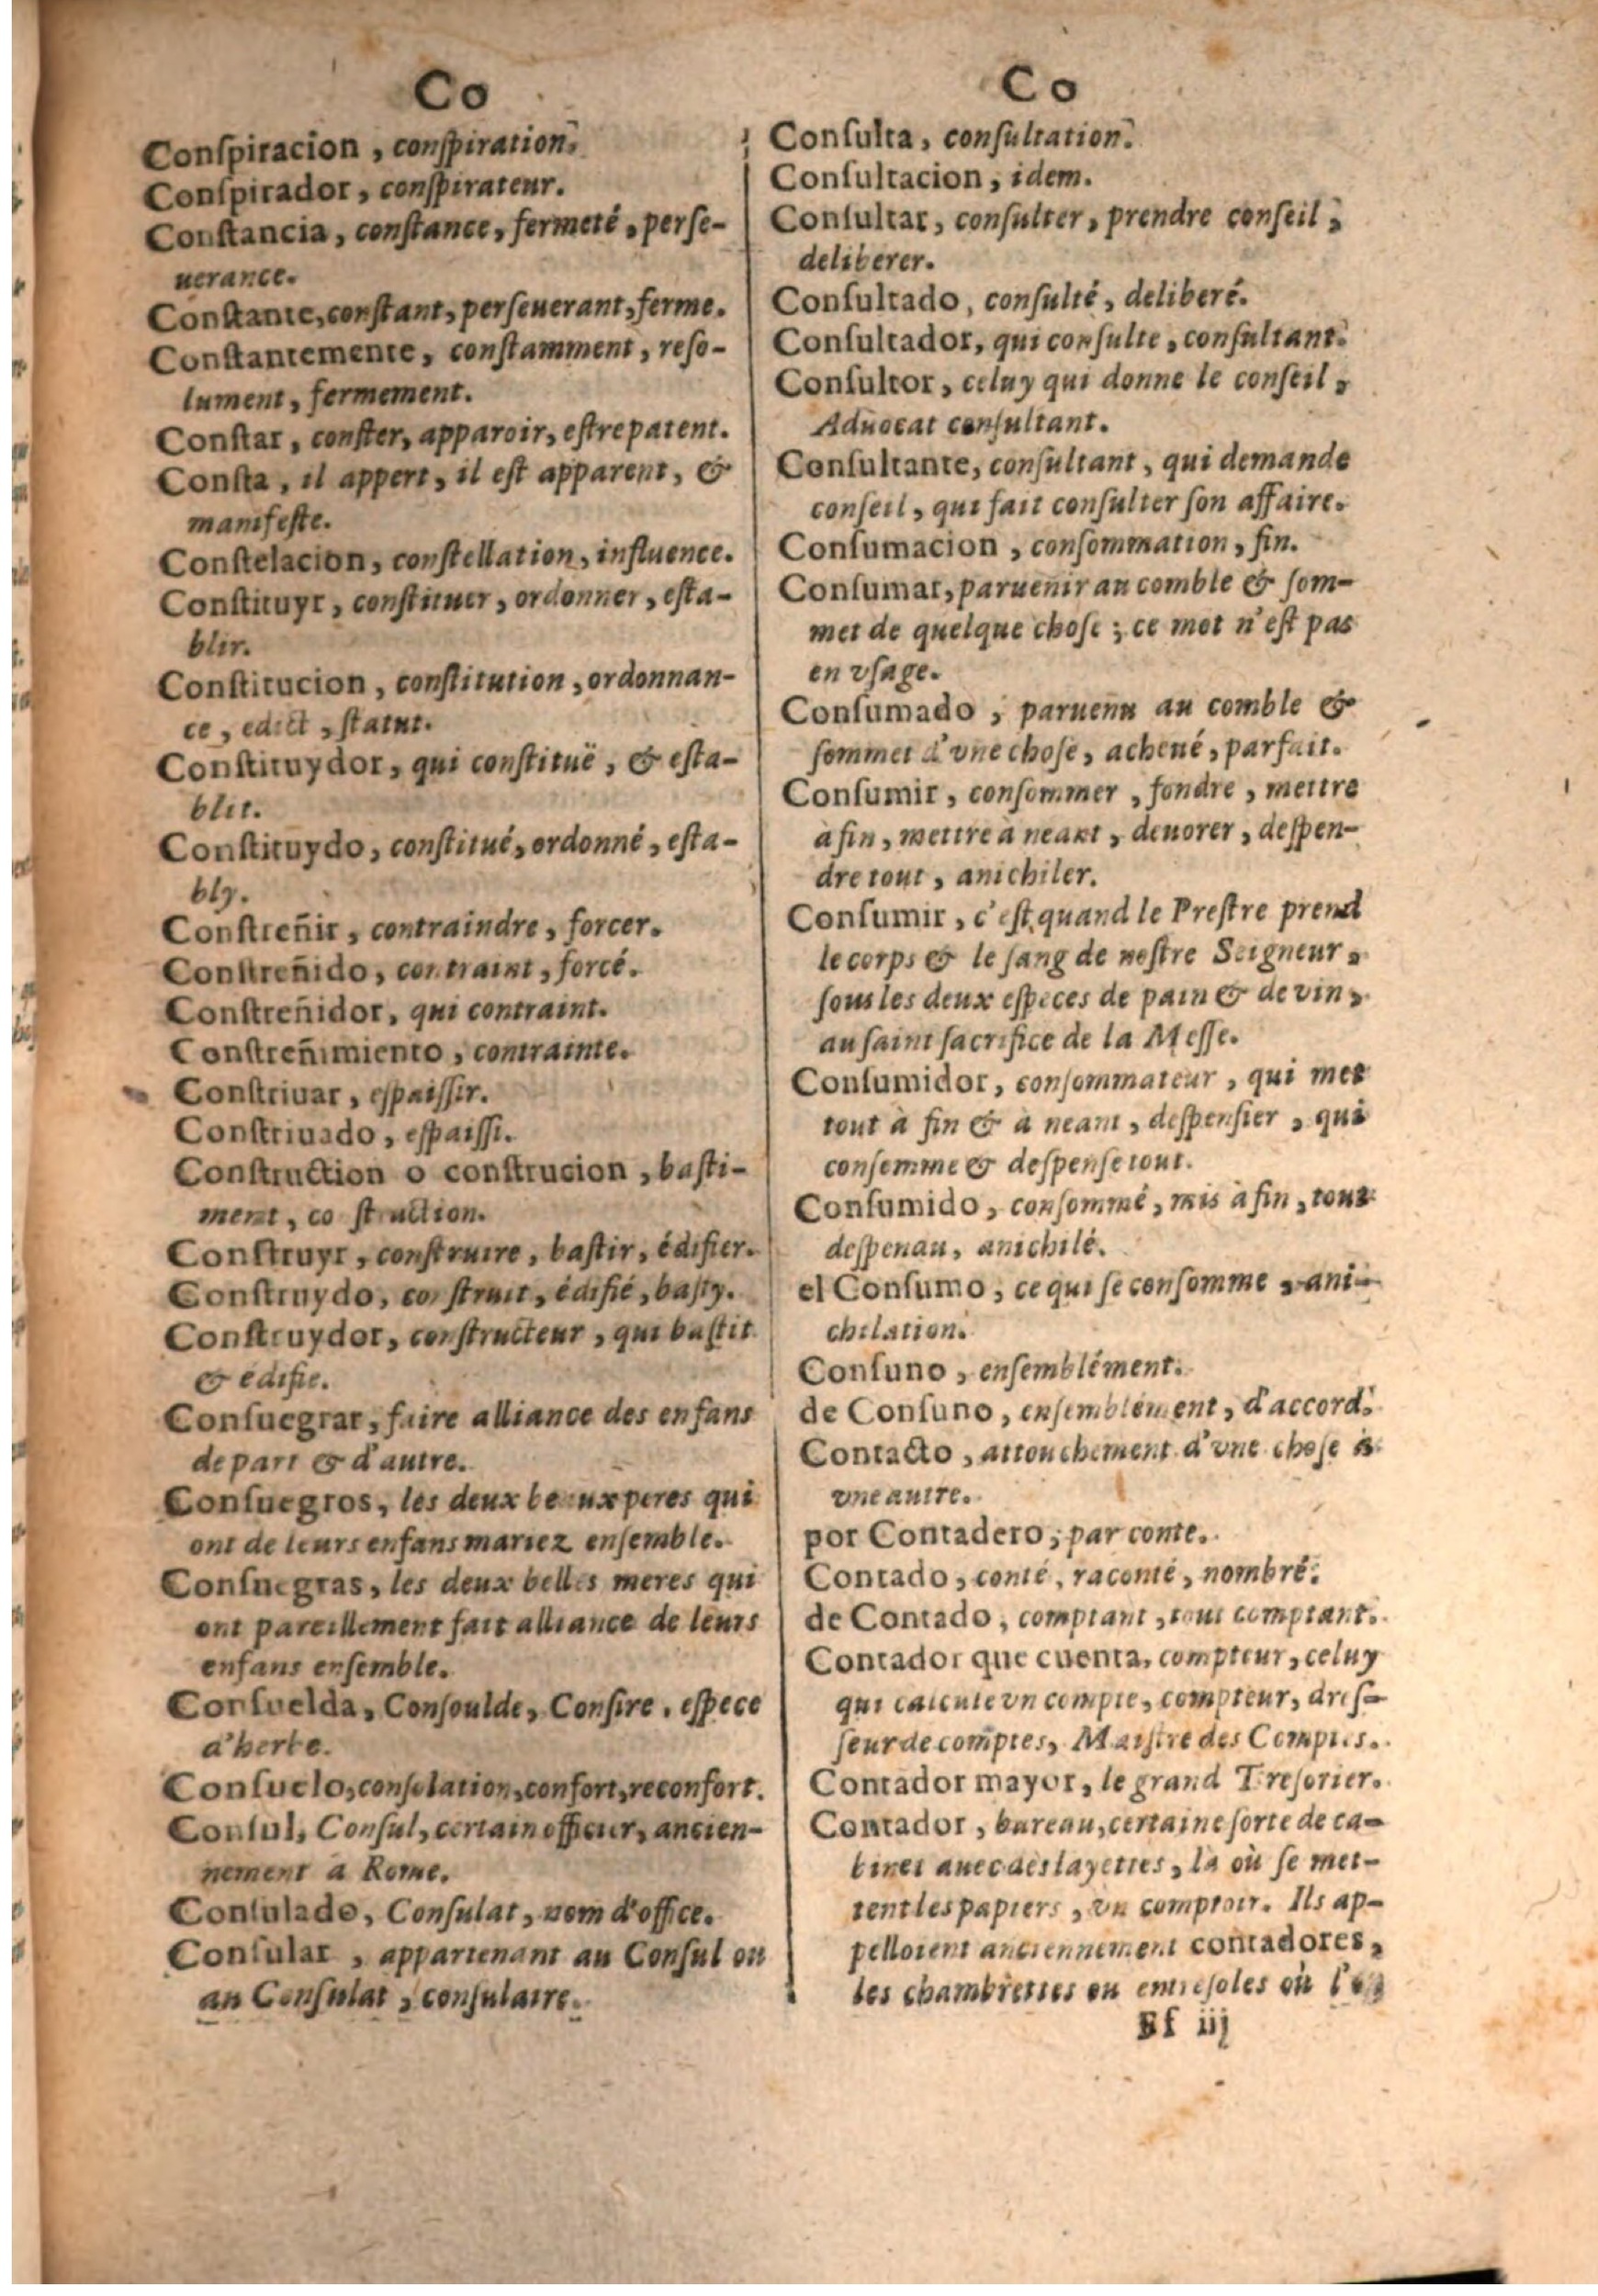 Co
Conſpiracion, conſpiration.
Conſpirador, conſpirateur.
Conſtancia, conſtance, fermeté, perſe-
uerance.
Conſtante, conſtant, perſeuerant, ferme.
Conſtantemente, conſtamment, reſo-
lument, fermement.
Conſtar, conſter, apparoir, eſtre patent.
Conſta, il appert, il eſt apparent, &
manifeſte.
Conſtelacion, conſtellation, influence.
Conſtituyr, conſtituer, ordonner, eſta-
blir.
Conſtitucion, conſtitution, ordonnan-
ce, edict, ſtatut.
Conſtituydor, qui conſtituë, & eſta-
blit.
Conſtituydo, conſtitué, ordonné, eſta-
bly.
Conſtreñir, contraindre, forcer.
Conſtreñido, contraint, forcé.
Conſtreñidor, qui contraint.
Conſtreñimiento, contrainte.
Conſtriuar, eſpaiſſir.
Conſtriuado, eſpaiſſi.
Conſtruction o conſtrucion, baſti-
ment, co ſtruction.
Conſtruyr, conſtruire, baſtir, édifier.
Conſtruydo, conſtruit, édifié, baſty.
Conſtruydor, conſtructeur, qui baſtit
& édifie.
Conſuegrar, faire alliance des enfans
de part & d'autre.
Conſuegros, les deux beaux peres qui
ont de leurs enfans mariez enſemble.
Conſuegras, les deux belles meres qui
ont pareillement fait alliance de leurs
enfans enſemble.
Conſuelda, Conſoulde, Conſire, eſpece
d'herbe.
Conſuelo, conſolation, confort, reconfort.
Conſul, Conſul, certain officier, ancien-
nement à Rome.
Conſulado, Conſulat, nom d'office.
Conſular, appartenant au Conſul ou
au Conſulat, conſulaire.
Co
Conſulta, conſultation.
Conſultacion, idem.
Conſultar, conſulter, prendre conſeil,
deliberer.
Conſultado, conſulté, deliberé.
Conſultador, qui conſulte, conſultant.
Conſultor, celuy qui donne le conſeil,
Aduocat conſultant.
Conſultante, conſultant, qui demande
conſeil, qui fait conſulter ſon affaire.
Conſumacion, conſommation, fin.
Conſumar, paruenir au comble & ſom-
met de quelque choſe; ce mot n'eſt pas
en vſage.
Conſumado, paruenu au comble &
ſommet d'vne choſe, acheué, parfait.
Conſumir, conſommer, fondre, mettre
à fin, mettre à neant, deuorer, deſpen-
dre tout, anichiler.
Conſumir, c'eſt quand le Preſtre prend
le corps & le ſang de noſtre Seigneur,
ſous les deux eſpeces de pain & de vin,
au ſaint ſacrifice de la Meſſe.
Conſumidor, conſommateur, qui met
tout à fin & à neant, deſpenſier, qui
conſomme & deſpenſe tout.
Conſumido, conſommé, mis à fin, tout
deſpendu, anichilé.
el Conſumo, ce qui ſe conſomme, ani-
chilation.
Conſuno, enſemblément.
de Conſuno, enſemblément, d'accord.
Contacto, attouchement d'vne choſe à
vne autre.
por Contadero, par conte.
Contado, conté, raconté, nombré.
de Contado, comptant, tout comptant.
Contador que cuenta, compteur, celuy
qui calcule vn compte, compteur, dreſ-
ſeur de comptes, Maiſtre des Comptes.
Contador mayor, le grand Treſorier.
Contador, bureau, certaine ſorte de ca-
binet auec des layettes, là où ſe met-
tent les papiers, vn comptoir. Ils ap-
pelloient anciennement contadores,
les chambrettes ou entreſoles où l'on
Sſ iij